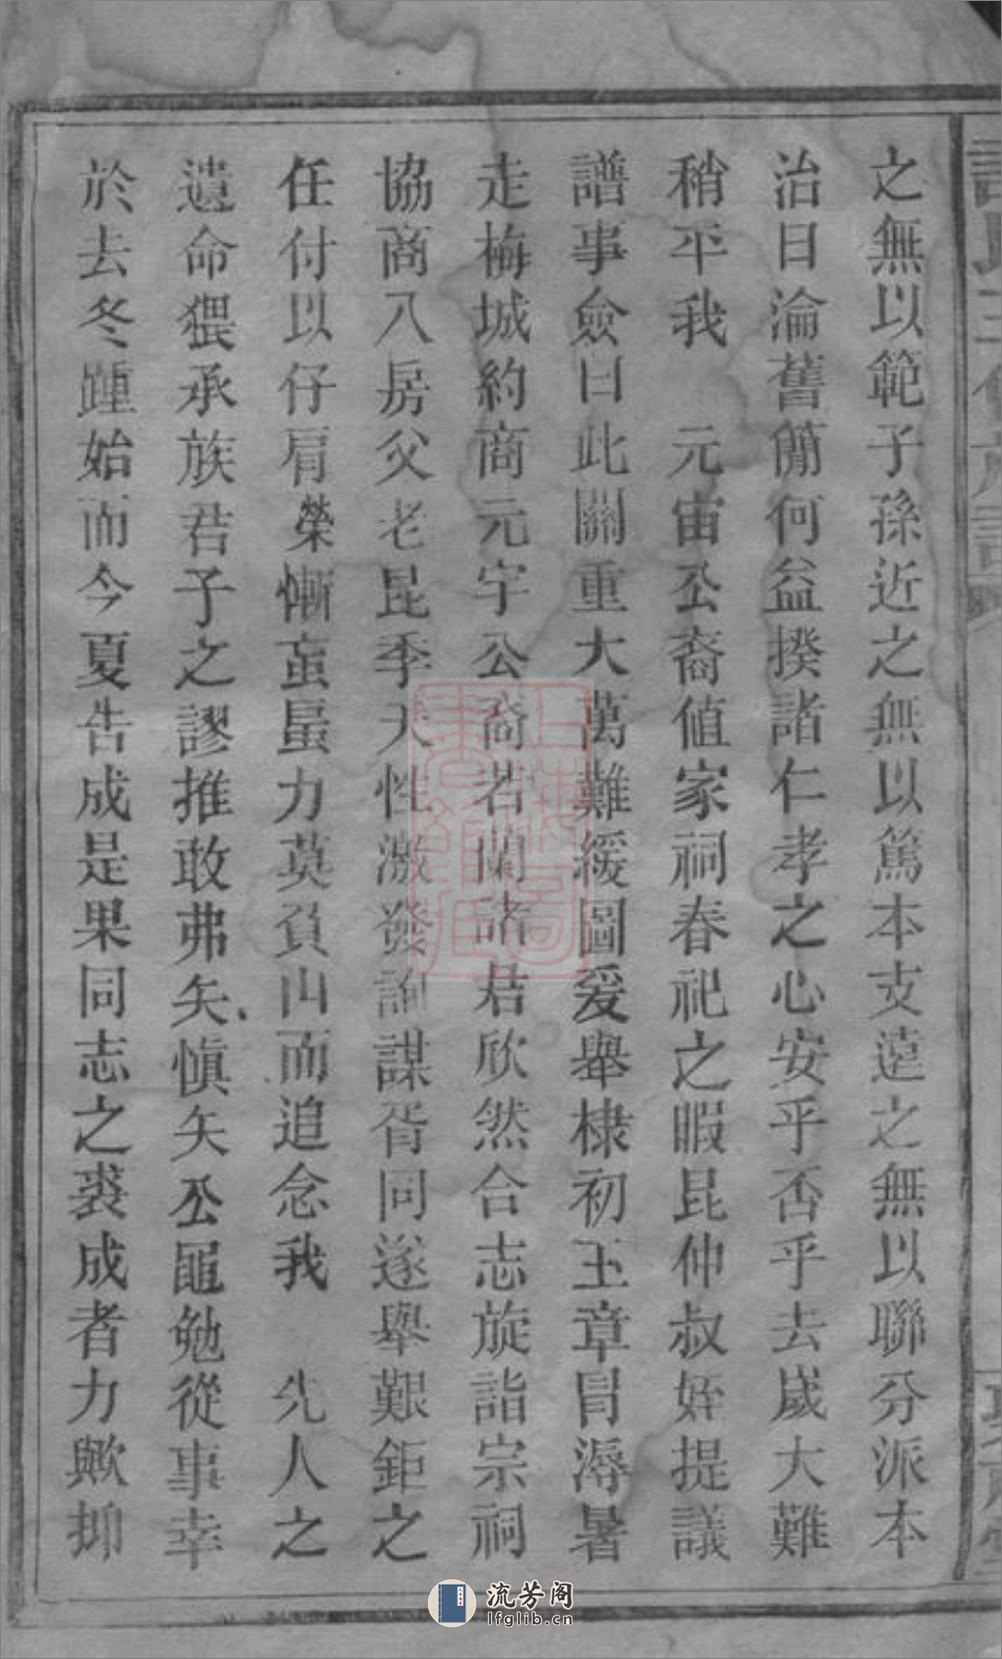 之無以範子孫近之無以篤本支遠之無以聯分派本
治日淪舊簡何益揆諸仁孝之心安乎否乎去歲大難
稍平我 元宙公裔值家祠春祀之暇昆仲叔姪提議
譜事僉曰此關重大萬難緩圖爰舉棣初玉章冒溽暑
走梅城約商元宇公裔若蘭諸君欣然合志旋詣宗祠
協商八房父老昆季天性激發詢謀胥同遂舉艱鉅之
任付以仔肩榮慚蝱蝨力莫負山而追念我 先人之
遺命猥承族君子之謬推敢弗矢慎矢公黽勉從事幸
於去冬踵始而今夏告成是果同志之裘成者力歟抑
上海圖書館藏
流芳阁
lfglib.cn